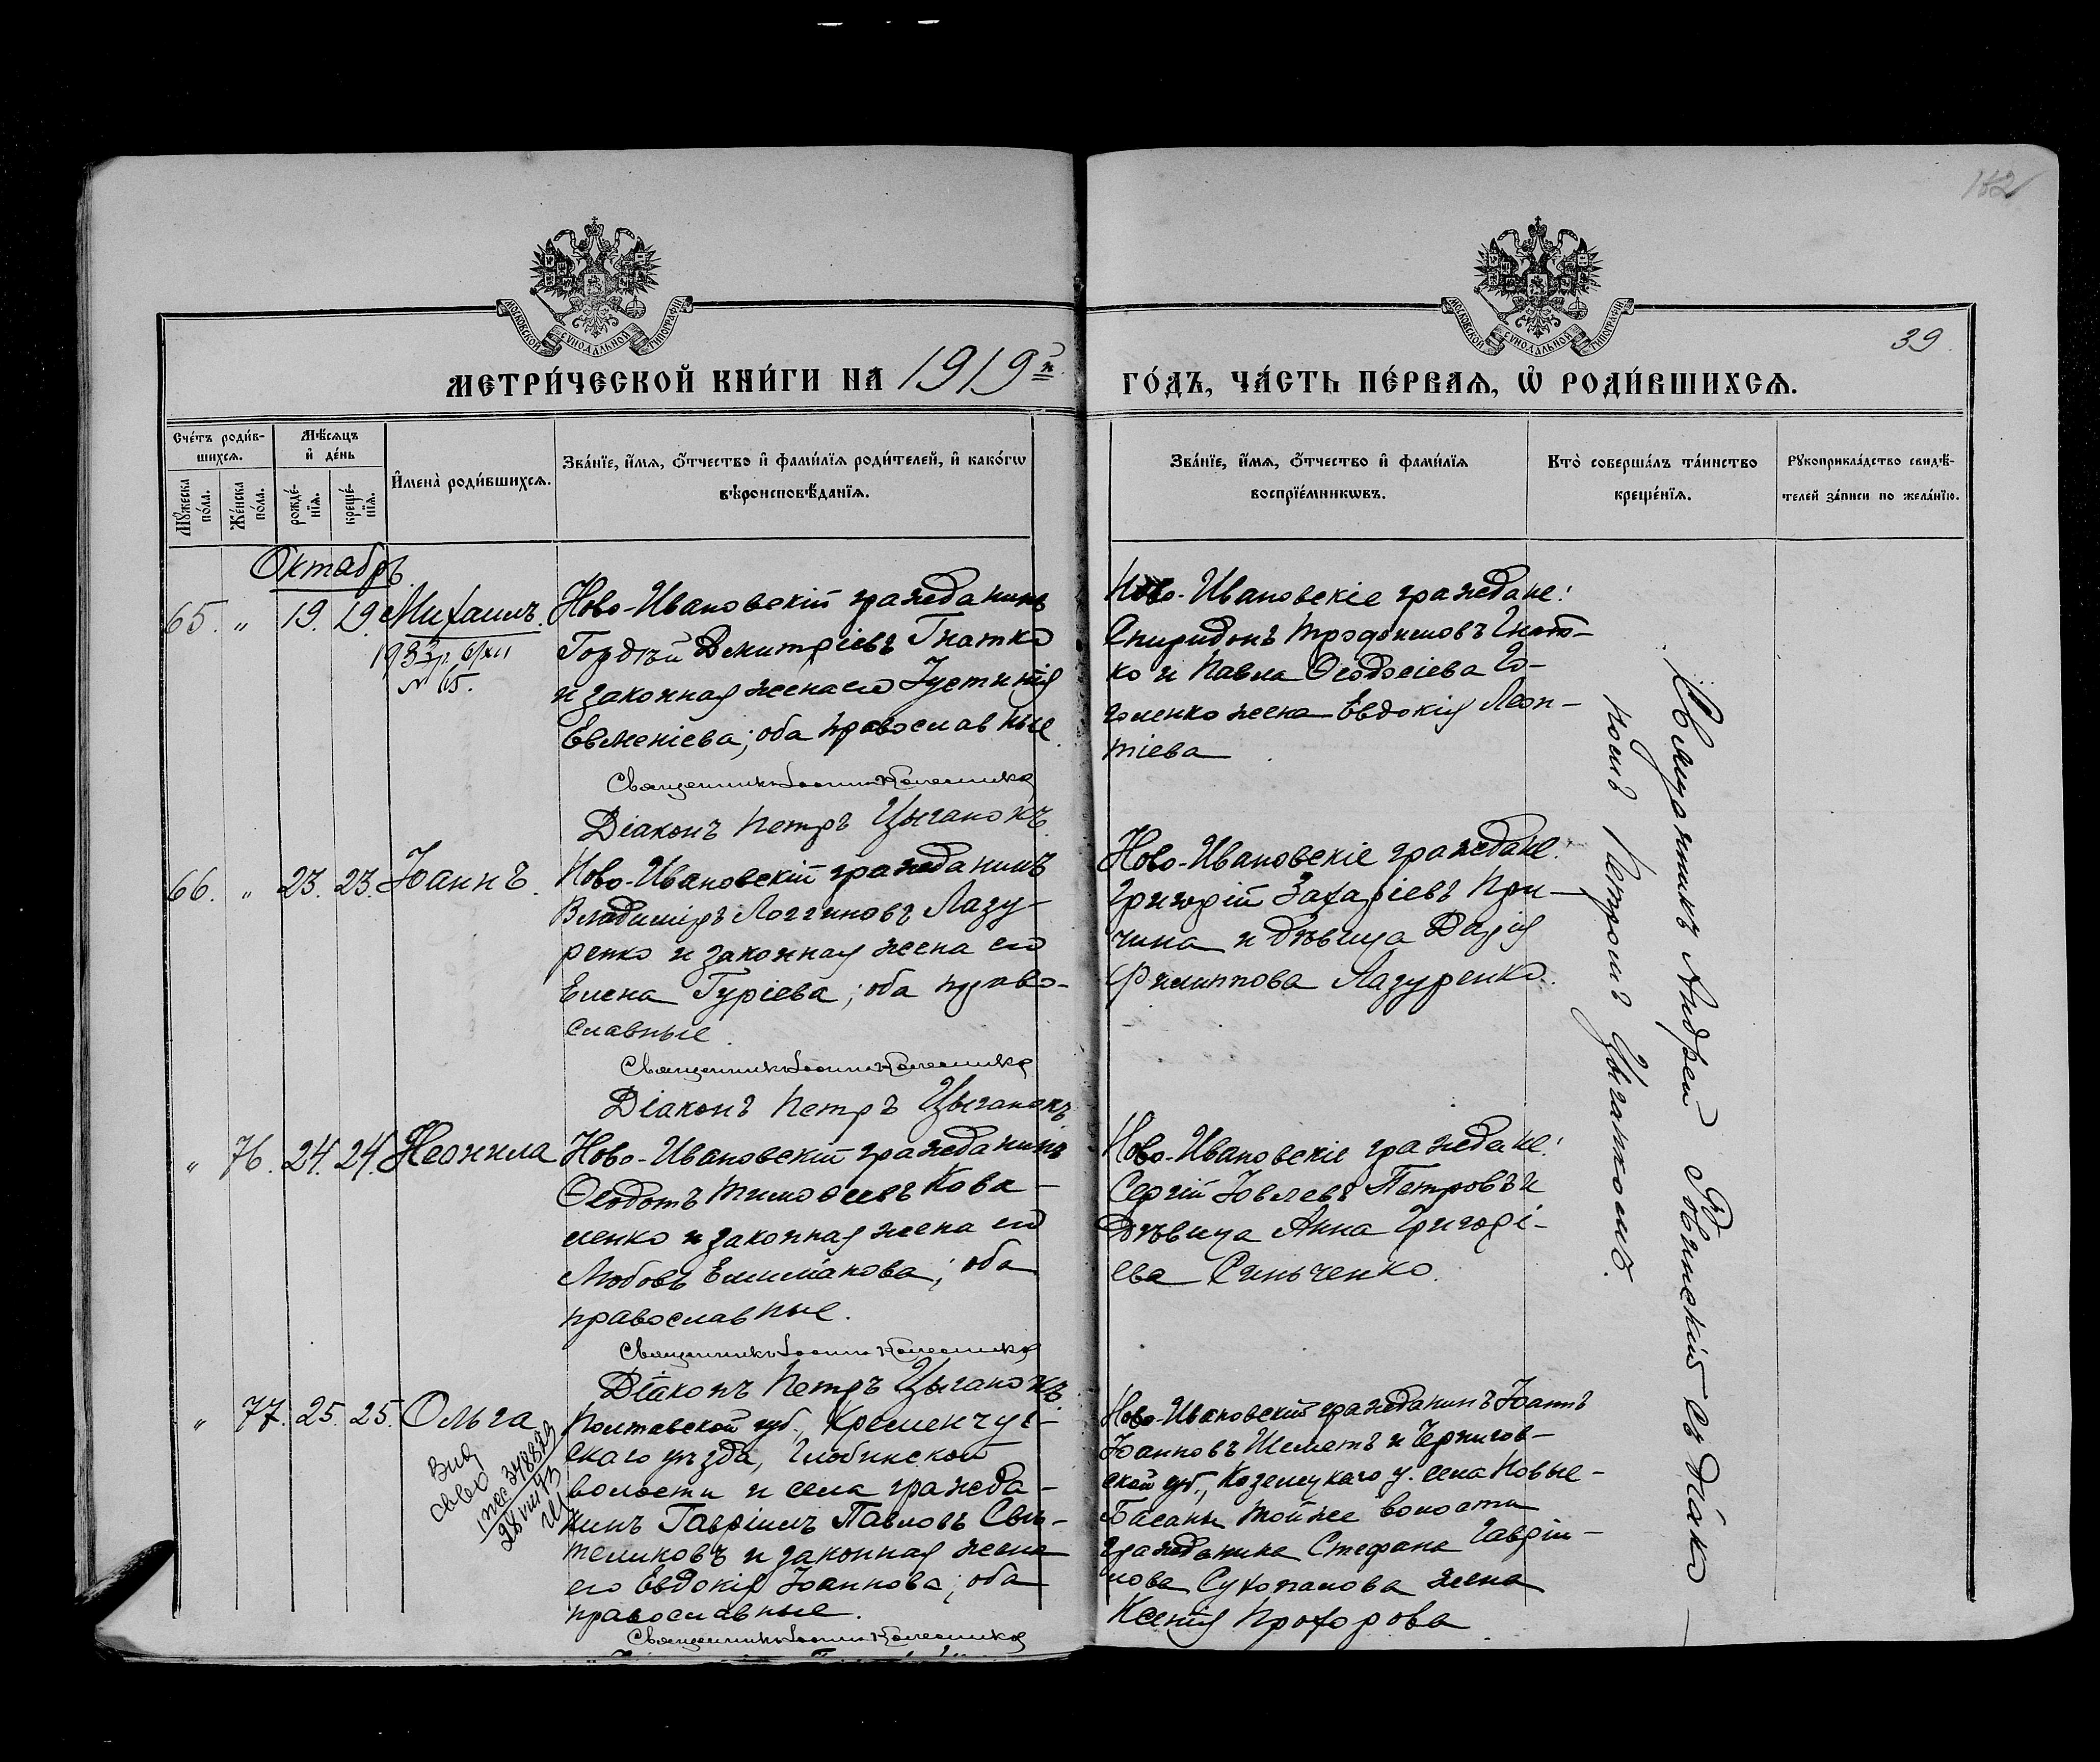 182
39
МОСКОВСКОЙ СѴНОДАЛЬНОЙ ТИПОГРАФІИ
МОСКОВСКОЙ СѴНОДАЛЬНОЙ ТИПОГРАФІИ
МЕТРИ́ЧЕСКОЙ КНИ́ГИ НА 1919й
ГО́ДЪ, ЧА́СТЬ ПЕ́РВАѦ, Ѿ РОДИ́ВШИХСѦ.
Сче́тъ роди́в-
шихсѧ.
Мѣ́сѧцъ
и҆ де́нь
Мꙋ́жеска по́ла.
Же́нска по́ла.
рожде́-
нїѧ.
креще́-
нїѧ.
И҆мена̀ роди́вшихсѧ.
Зва́нїе, и҆́мѧ, ѻ҆́тчество и҆ фами́лїѧ роди́телей, и҆ како́гѡ
вѣроисповѣ́данїѧ.
Зва́нїе, и҆́мѧ, ѻ҆́тчество и҆ фами́лїѧ
воспрїе́мникѡвъ.
Кто̀ соверша́лъ та́инство
креще́нїѧ.
Рꙋкоприкла́дство свидѣ́-
телей за́писи по жела́нїю.
Октябрь
65. " 19. 19. Михаилъ.
1933г. 6/XII
№ 65.
Ново-Ивановскій гражданинъ
Гордѣй Димитріевъ Гнатко
и законная жена его Іустинія
Евменіева; оба православные.
Священникъ Іоаннъ Колесниковъ
Діаконъ Петръ Цыганокъ.
Ново-Ивановскіе граждане:
Спиридонъ Трофимовъ Гнат-
ко и Павла Ѳеодосіева Го-
голенко жена Евдокія Леон-
тіева
66. " 23. 23. Іоаннъ.
Ново-Ивановскій гражданинъ
Владиміръ Логгиновъ Лазу-
ренко и законная жена его
Елена Гуріева; оба право-
славные.
Священникъ Іоаннъ Колесниковъ
Діаконъ Петръ Цыганокъ
Ново-Ивановскіе граждане:
Григорій Захаріевъ При-
чина и дѣвица Дарія
Филиппова Лазуренко.
" 76. 24. 24. Неонила
Ново-Ивановскій гражданинъ
Ѳеодотъ Тимоѳеевъ Кова-
ленко и законная жена его
Любовь Елимпакова; оба
православные.
Священникъ Іоаннъ Колесниковъ
Діаконъ Петръ Цыганокъ.
Ново-Ивановскіе граждане:
Сергій Іовлевъ Петровъ и
дѣвица Анна Григорі-
ева Синьченко.
" 77. 25. 25. Ольга
28
Полтавской губ., Кременчуг-
скаго уѣзда, Глобинской
волости и села гражда-
нинъ Гавріилъ Павловъ Сви-
теликовъ и законная жена
его Евдокія Іоаннова; оба
православные.
Священникъ Іоаннъ Колесниковъ
Ново-Ивановскій гражданинъ Іоаннъ
Іоанновъ Шеметъ и Чернигов-
ской губ., Козелецкаго у. села Новые-
Басань той же волости
гражданина Стефана Гавріи-
лова Сухопанова жена
Ксенія Прохорова
Священникъ Андрей Ровинскій съ діако-
номъ Петромъ Цыганкомъ.